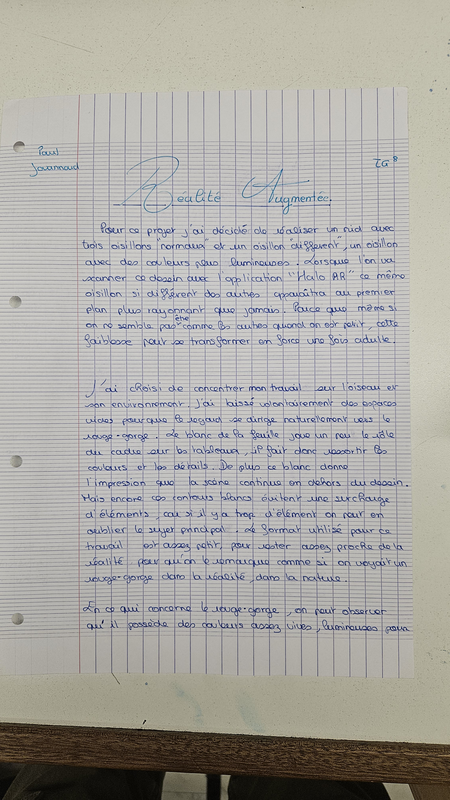 Paul
Jouannaud
TG8
Réalité Augmentée.
Pour ce projet j'ai décidé de réaliser un nid avec
trois oisillons "normaux" et un oisillon "différent", un oisillon
avec des couleurs plus lumineuses. Lorsque l'on va
scanner ce dessin avec l'application "Halo AR" ce même
oisillon si différent des autres apparaîtra au premier
plan plus rayonnant que jamais. Parce que même si
on ne semble pas être comme les autres quand on est petit, cette
faiblesse peut se transformer en force une fois adulte.
J'ai choisi de concentrer mon travail sur l'oiseau et
son environnement. J'ai laissé volontairement des espaces
vides pour que le regard se dirige naturellement vers le
rouge-gorge. Le blanc de la feuille joue un peu le rôle
du cadre sur les tableaux, il fait donc ressortir les
couleurs et les détails. De plus ce blanc donne
l'impression que la scène continue en dehors du dessin.
Mais encore ces contours blancs évitent une surcharge
d'éléments, car si il y a trop d'élément on peut en
oublier le sujet principal. Le format utilisé pour ce
travail est assez petit, pour rester assez proche de la
réalité pour qu'on le remarque comme si on voyait un
rouge-gorge dans la réalité, dans la nature.
En ce qui concerne le rouge-gorge, on peut observer
qu'il possède des couleurs assez vives, lumineuses pour